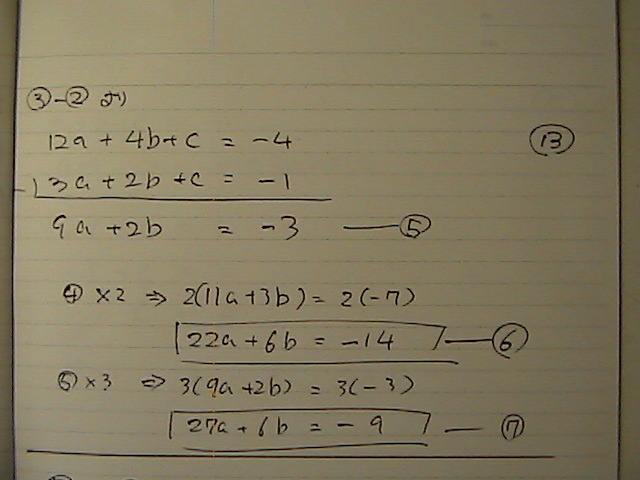 ③-② より
12a + 4b + c = -4
⑬
-) 3a + 2b + c = -1
9a + 2b = -3 — ⑤
④ × 2 ⇒ 2(11a + 3b) = 2(-7)
22a + 6b = -14 — ⑥
⑤ × 3 ⇒ 3(9a + 2b) = 3(-3)
27a + 6b = -9 — ⑦